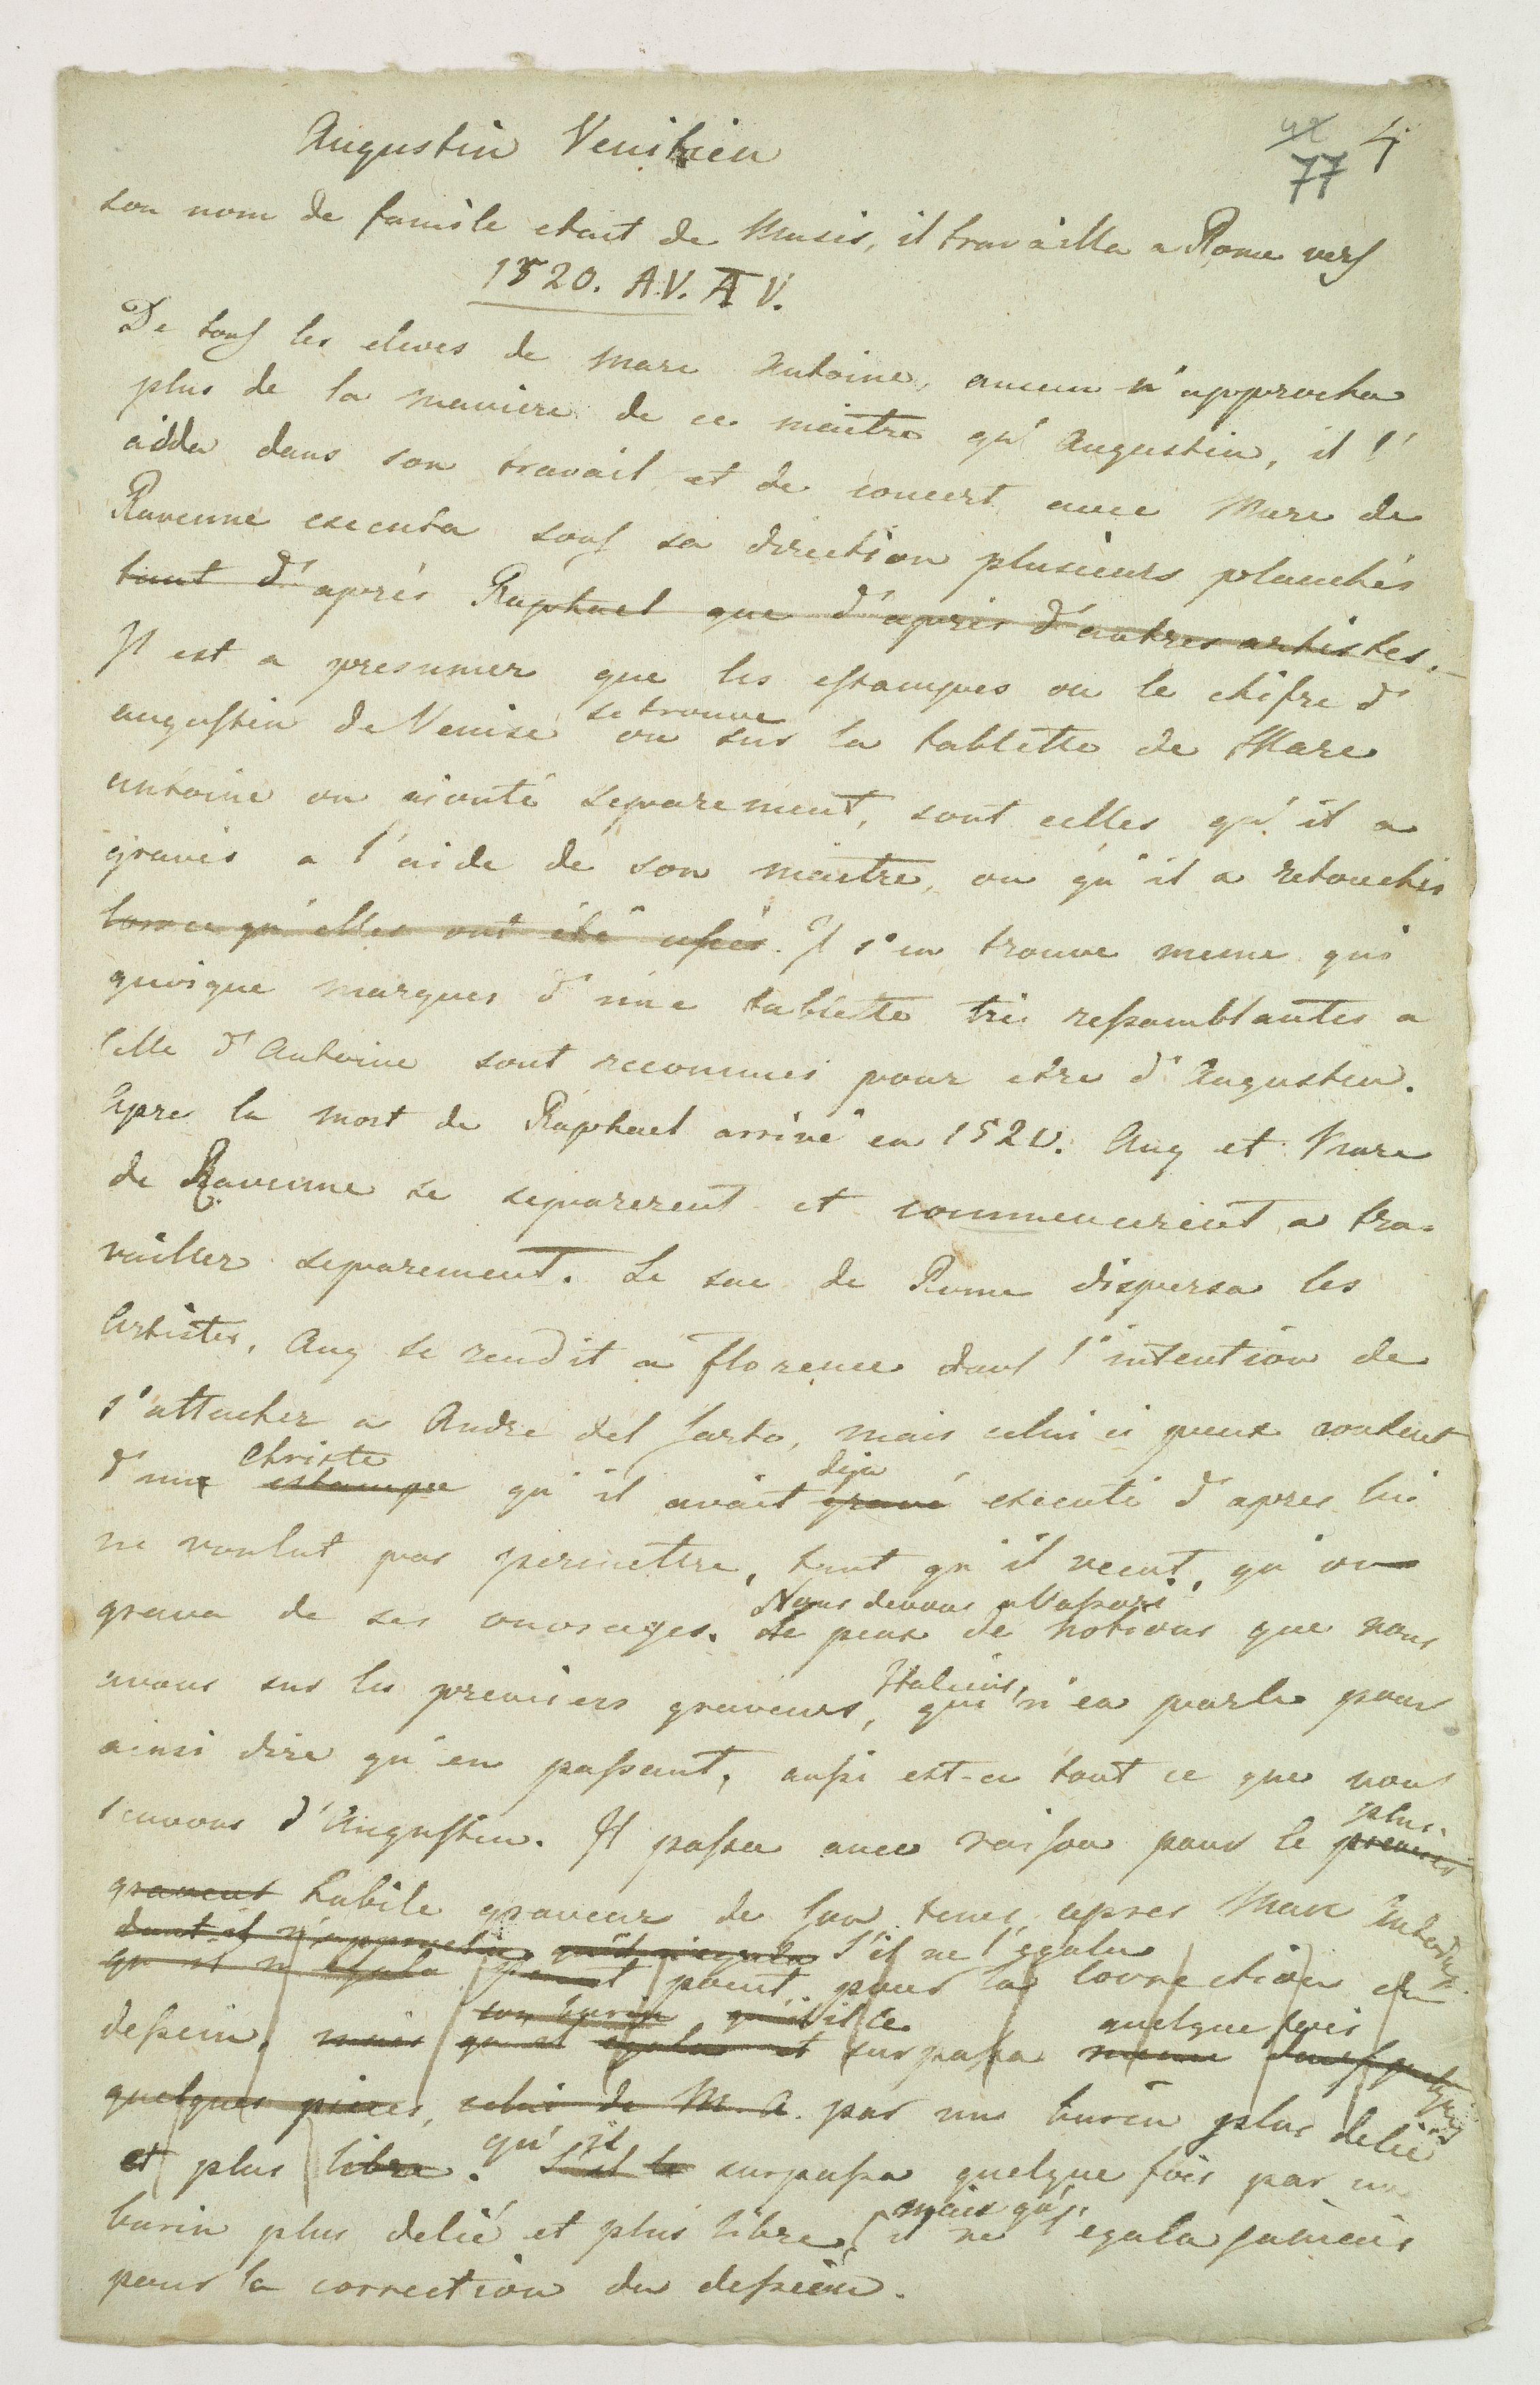 Augustin Venitien
4
77
son nom de famile etait de Musis, il travailla a Rome vers
1520. A.V. AV.
De tous les eleves de Marc Antoine, aucun n'approcha
plus de la maniere de ce maitre qu'Augustin, il l'
aida dans son travail et de concert avec Marc de
Ravenne executa sous sa direction plusieurs planches
tant d'après Raphael que d'après d'autres artistes.
Il est a presumer que les estampes ou le chifre d'
se trouve
augustin de Venise ou sur la tablette de Marc
antoine ou ajouté separement, sont celles qu'il a
gravés a l'aide de son maitre, ou qu'il a retouchés
lorsce qu'elles ont été usés. Il s'en trouve meme qui
quoique marques d'une tablette tres ressamblantes a
celle d'Antoine sont reconnues pour etre d'Augustin.
Apres la mort de Raphael arrivé en 1520. Aug et Marc
de Ravenne se separerent et commencerent a tra-
vailler separement. Le sac de Rome dispersa les
Artistes, Aug se rendit a Florence dans l'intention de
s'attacher a André del Sarto, mais celui ci peux content
Christe
deja
d'une estampe qu'il avait gravé executé d'apres lui
ne voulut pas permettre, tant qu'il vecut, qu'on
Nous devons a Vasari
grava de ses ouvrages. Le peux de notions que nous
Italiens,
avons sur les premiers graveurs, qui n'en parle pour
ainsi dire qu'en passant, aussi est-ce tout ce que nous
plus
scavons d'Augustin. Il passa avec raison pour le premier
graveur habile graveur de son tems, apres Marc Antoine
dont il n'approcha qu'il n'egala S'il ne l'egala
qu'il n'egala point pour la correction du
son burin qu'il le quelque fois
dessein, mais qu'il egala et surpassa meme dans
quelques pieces, celui de M. A. par un burin plus delié
qu'il
et plus libre. S'il le surpassa quelque fois par un
mais qu'
burin plus delié et plus libre, il ne l'egala jamais
pour la correction du dessein.